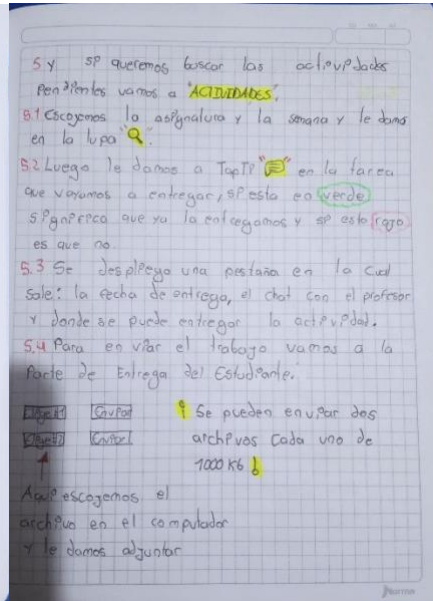 5 Y si queremos buscar las actividades
Pendientes vamos a "ACTIVIDADES".
5.1 Escojemos la asignatura y la semana y le damos
en la lupa "🔍".
5.2 Luego le damos a en la tarea
que vayamos a entregar, si esta en verde
significa que ya la entregamos y si esta rojo
es que no.
5.3 Se despliega una pestaña en la cual
sale: la fecha de entrega, el chat con el profesor
y donde se puede entregar la actividad.
5.4 Para enviar el trabajo vamos a la
Parte de Entrega del Estudiante.
Enviar ¡ Se pueden enviar dos
Enviar archivos cada uno de
1000 Kb !
Aqui escojemos el
archivo en el computador
y le damos adjuntar